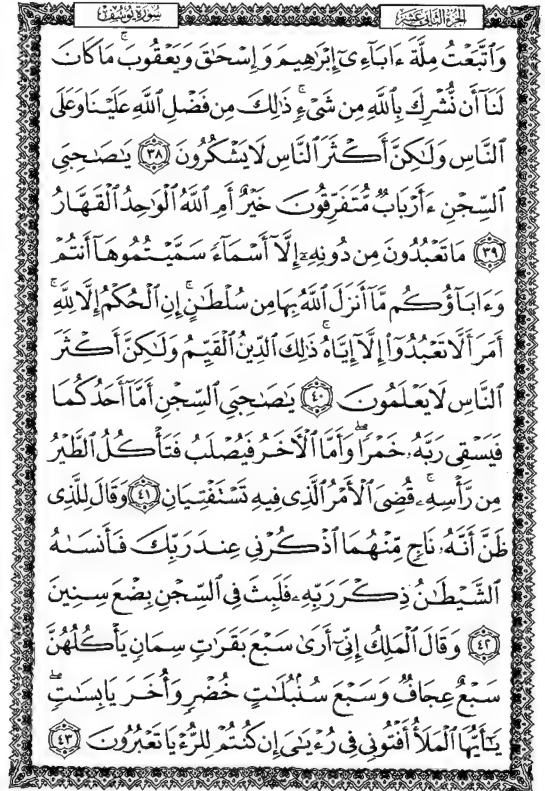 الجزء الثاني عشر
سورة يوسف
وَٱتَّبَعْتُ مِلَّةَ ءَابَآءِىٓ إِبْرَٰهِيمَ وَإِسْحَٰقَ وَيَعْقُوبَ ۚ مَا كَانَ
لَنَآ أَن نُّشْرِكَ بِٱللَّهِ مِن شَىْءٍ ۚ ذَٰلِكَ مِن فَضْلِ ٱللَّهِ عَلَيْنَا وَعَلَى
ٱلنَّاسِ وَلَٰكِنَّ أَكْثَرَ ٱلنَّاسِ لَا يَشْكُرُونَ ﴿٣٨﴾ يَٰصَٰحِبَىِ
ٱلسِّجْنِ ءَأَرْبَابٌ مُّتَفَرِّقُونَ خَيْرٌ أَمِ ٱللَّهُ ٱلْوَٰحِدُ ٱلْقَهَّارُ
﴿٣٩﴾ مَا تَعْبُدُونَ مِن دُونِهِۦٓ إِلَّآ أَسْمَآءً سَمَّيْتُمُوهَآ أَنتُمْ
وَءَابَآؤُكُم مَّآ أَنزَلَ ٱللَّهُ بِهَا مِن سُلْطَٰنٍ ۚ إِنِ ٱلْحُكْمُ إِلَّا لِلَّهِ ۚ
أَمَرَ أَلَّا تَعْبُدُوٓا۟ إِلَّآ إِيَّاهُ ۚ ذَٰلِكَ ٱلدِّينُ ٱلْقَيِّمُ وَلَٰكِنَّ أَكْثَرَ
ٱلنَّاسِ لَا يَعْلَمُونَ ﴿٤٠﴾ يَٰصَٰحِبَىِ ٱلسِّجْنِ أَمَّآ أَحَدُكُمَا
فَيَسْقِى رَبَّهُۥ خَمْرًا ۖ وَأَمَّا ٱلْءَاخَرُ فَيُصْلَبُ فَتَأْكُلُ ٱلطَّيْرُ
مِن رَّأْسِهِۦ ۚ قُضِىَ ٱلْأَمْرُ ٱلَّذِى فِيهِ تَسْتَفْتِيَانِ ﴿٤١﴾ وَقَالَ لِلَّذِى
ظَنَّ أَنَّهُۥ نَاجٍ مِّنْهُمَا ٱذْكُرْنِى عِندَ رَبِّكَ فَأَنسَىٰهُ
ٱلشَّيْطَٰنُ ذِكْرَ رَبِّهِۦ فَلَبِثَ فِى ٱلسِّجْنِ بِضْعَ سِنِينَ
﴿٤٢﴾ وَقَالَ ٱلْمَلِكُ إِنِّىٓ أَرَىٰ سَبْعَ بَقَرَٰتٍ سِمَانٍ يَأْكُلُهُنَّ
سَبْعٌ عِجَافٌ وَسَبْعَ سُنۢبُلَٰتٍ خُضْرٍ وَأُخَرَ يَابِسَٰتٍ ۖ
يَٰٓأَيُّهَا ٱلْمَلَأُ أَفْتُونِى فِى رُءْيَٰىَ إِن كُنتُمْ لِلرُّءْيَا تَعْبُرُونَ ﴿٤٣﴾